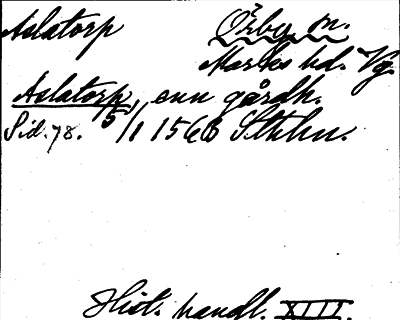 Aslatorp Örby sn.
Marks hd. Vg.
Aslatorp, enn gårdh.
Sid. 78. 5/1 1563 Sthlm.
Hist. handl. XIII.